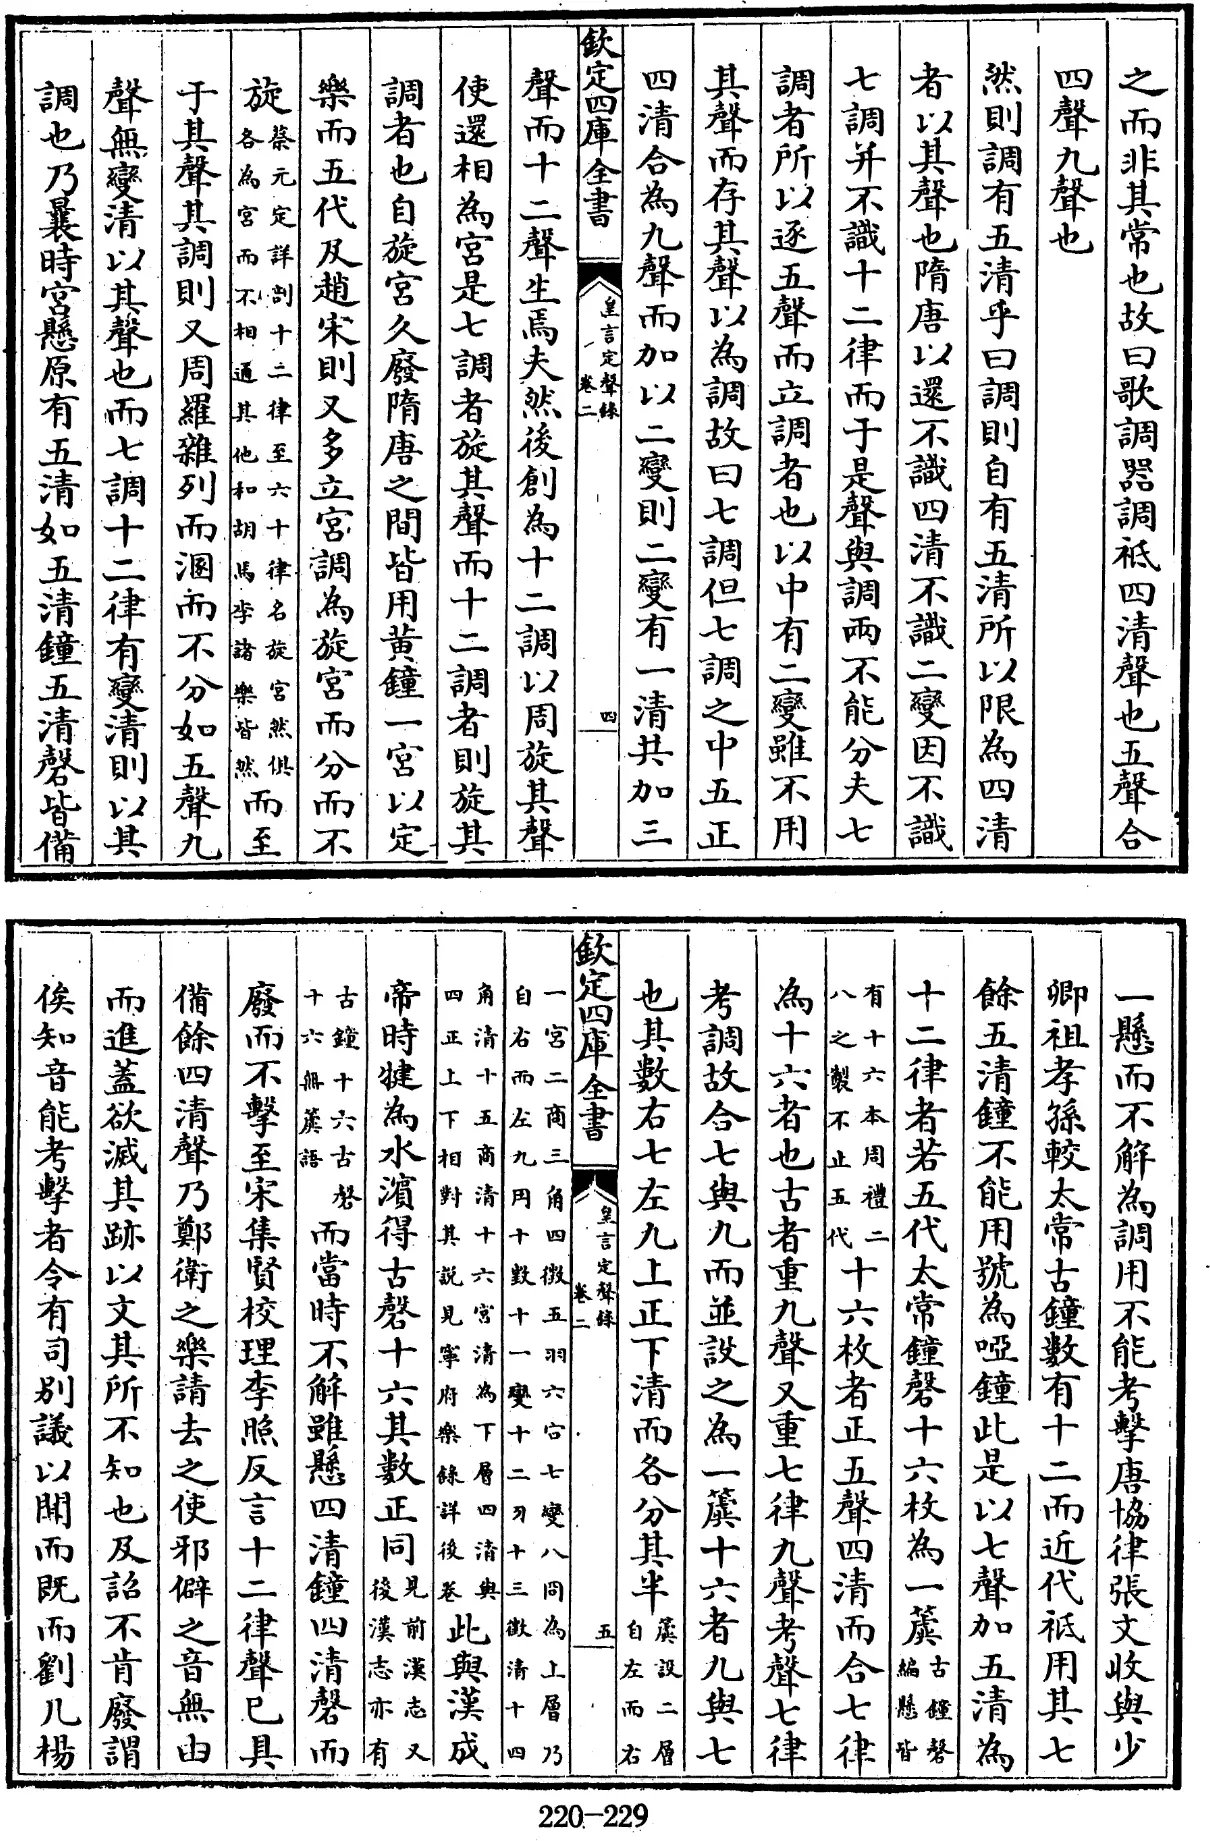 之而非其常也故曰歌調器調祗四清聲也五聲合
四聲九聲也
然則調有五清乎曰調則自有五清所以限為四清
者以其聲也隋唐以還不識四清不識二變因不識
七調并不識十二律而于是聲與調兩不能分夫七
調者所以逐五聲而立調者也以中有二變雖不用
其聲而存其聲以為調故曰七調但七調之中五正
四清合為九聲而加以二變則二變有一清共加三
欽定四庫全書
皇言定聲錄
卷二
四
聲而十二聲生焉夫然後創為十二調以周旋其聲
使還相為宮是七調者旋其聲而十二調者則旋其
調者也自旋宮久廢隋唐之間皆用黄鐘一宮以定
樂而五代及趙宋則又多立宮調為旋宮而分而不
旋蔡元定詳剖十二律至六十律名旋宮然俱
各為宮而不相通其他和胡馬李諸樂皆然而至
于其聲其調則又周羅雜列而溷而不分如五聲九
聲無變清以其聲也而七調十二律有變清則以其
調也乃曩時宮懸原有五清如五清鐘五清磬皆備
一懸而不解為調用不能考擊唐協律張文收與少
卿祖孝孫較太常古鐘數有十二而近代祗用其七
餘五清鐘不能用號為啞鐘此是以七聲加五清為
十二律者若五代太常鐘磬十六枚為一簴古鐘磬
編懸皆
有十六本周禮二
八之製不止五代十六枚者正五聲四清而合七律
為十六者也古者重九聲又重七律九聲考聲七律
考調故合七與九而並設之為一簴十六者九與七
也其數右七左九上正下清而各分其半簴設二層
自左而右
欽定四庫全書
皇言定聲錄
卷二
五
一宮二商三角四徵五羽六宮七變八同為上層乃
自右而左九円十數十一變十二刃十三徵清十四
角清十五商清十六宮清為下層四清與
四正上下相對其説見寧府樂錄詳後卷此與漢成
帝時犍為水濵得古磬十六其數正同見前漢志又
後漢志亦有
古鐘十六古磬
十六無㢘語而當時不解雖懸四清鐘四清磬而
廢而不擊至宋集賢校理李照反言十二律聲已具
備餘四清聲乃鄭衛之樂請去之使邪僻之音無由
而進蓋欲滅其跡以文其所不知也及詔不肯廢謂
俟知音能考擊者令有司别議以聞而既而劉几楊
220-229